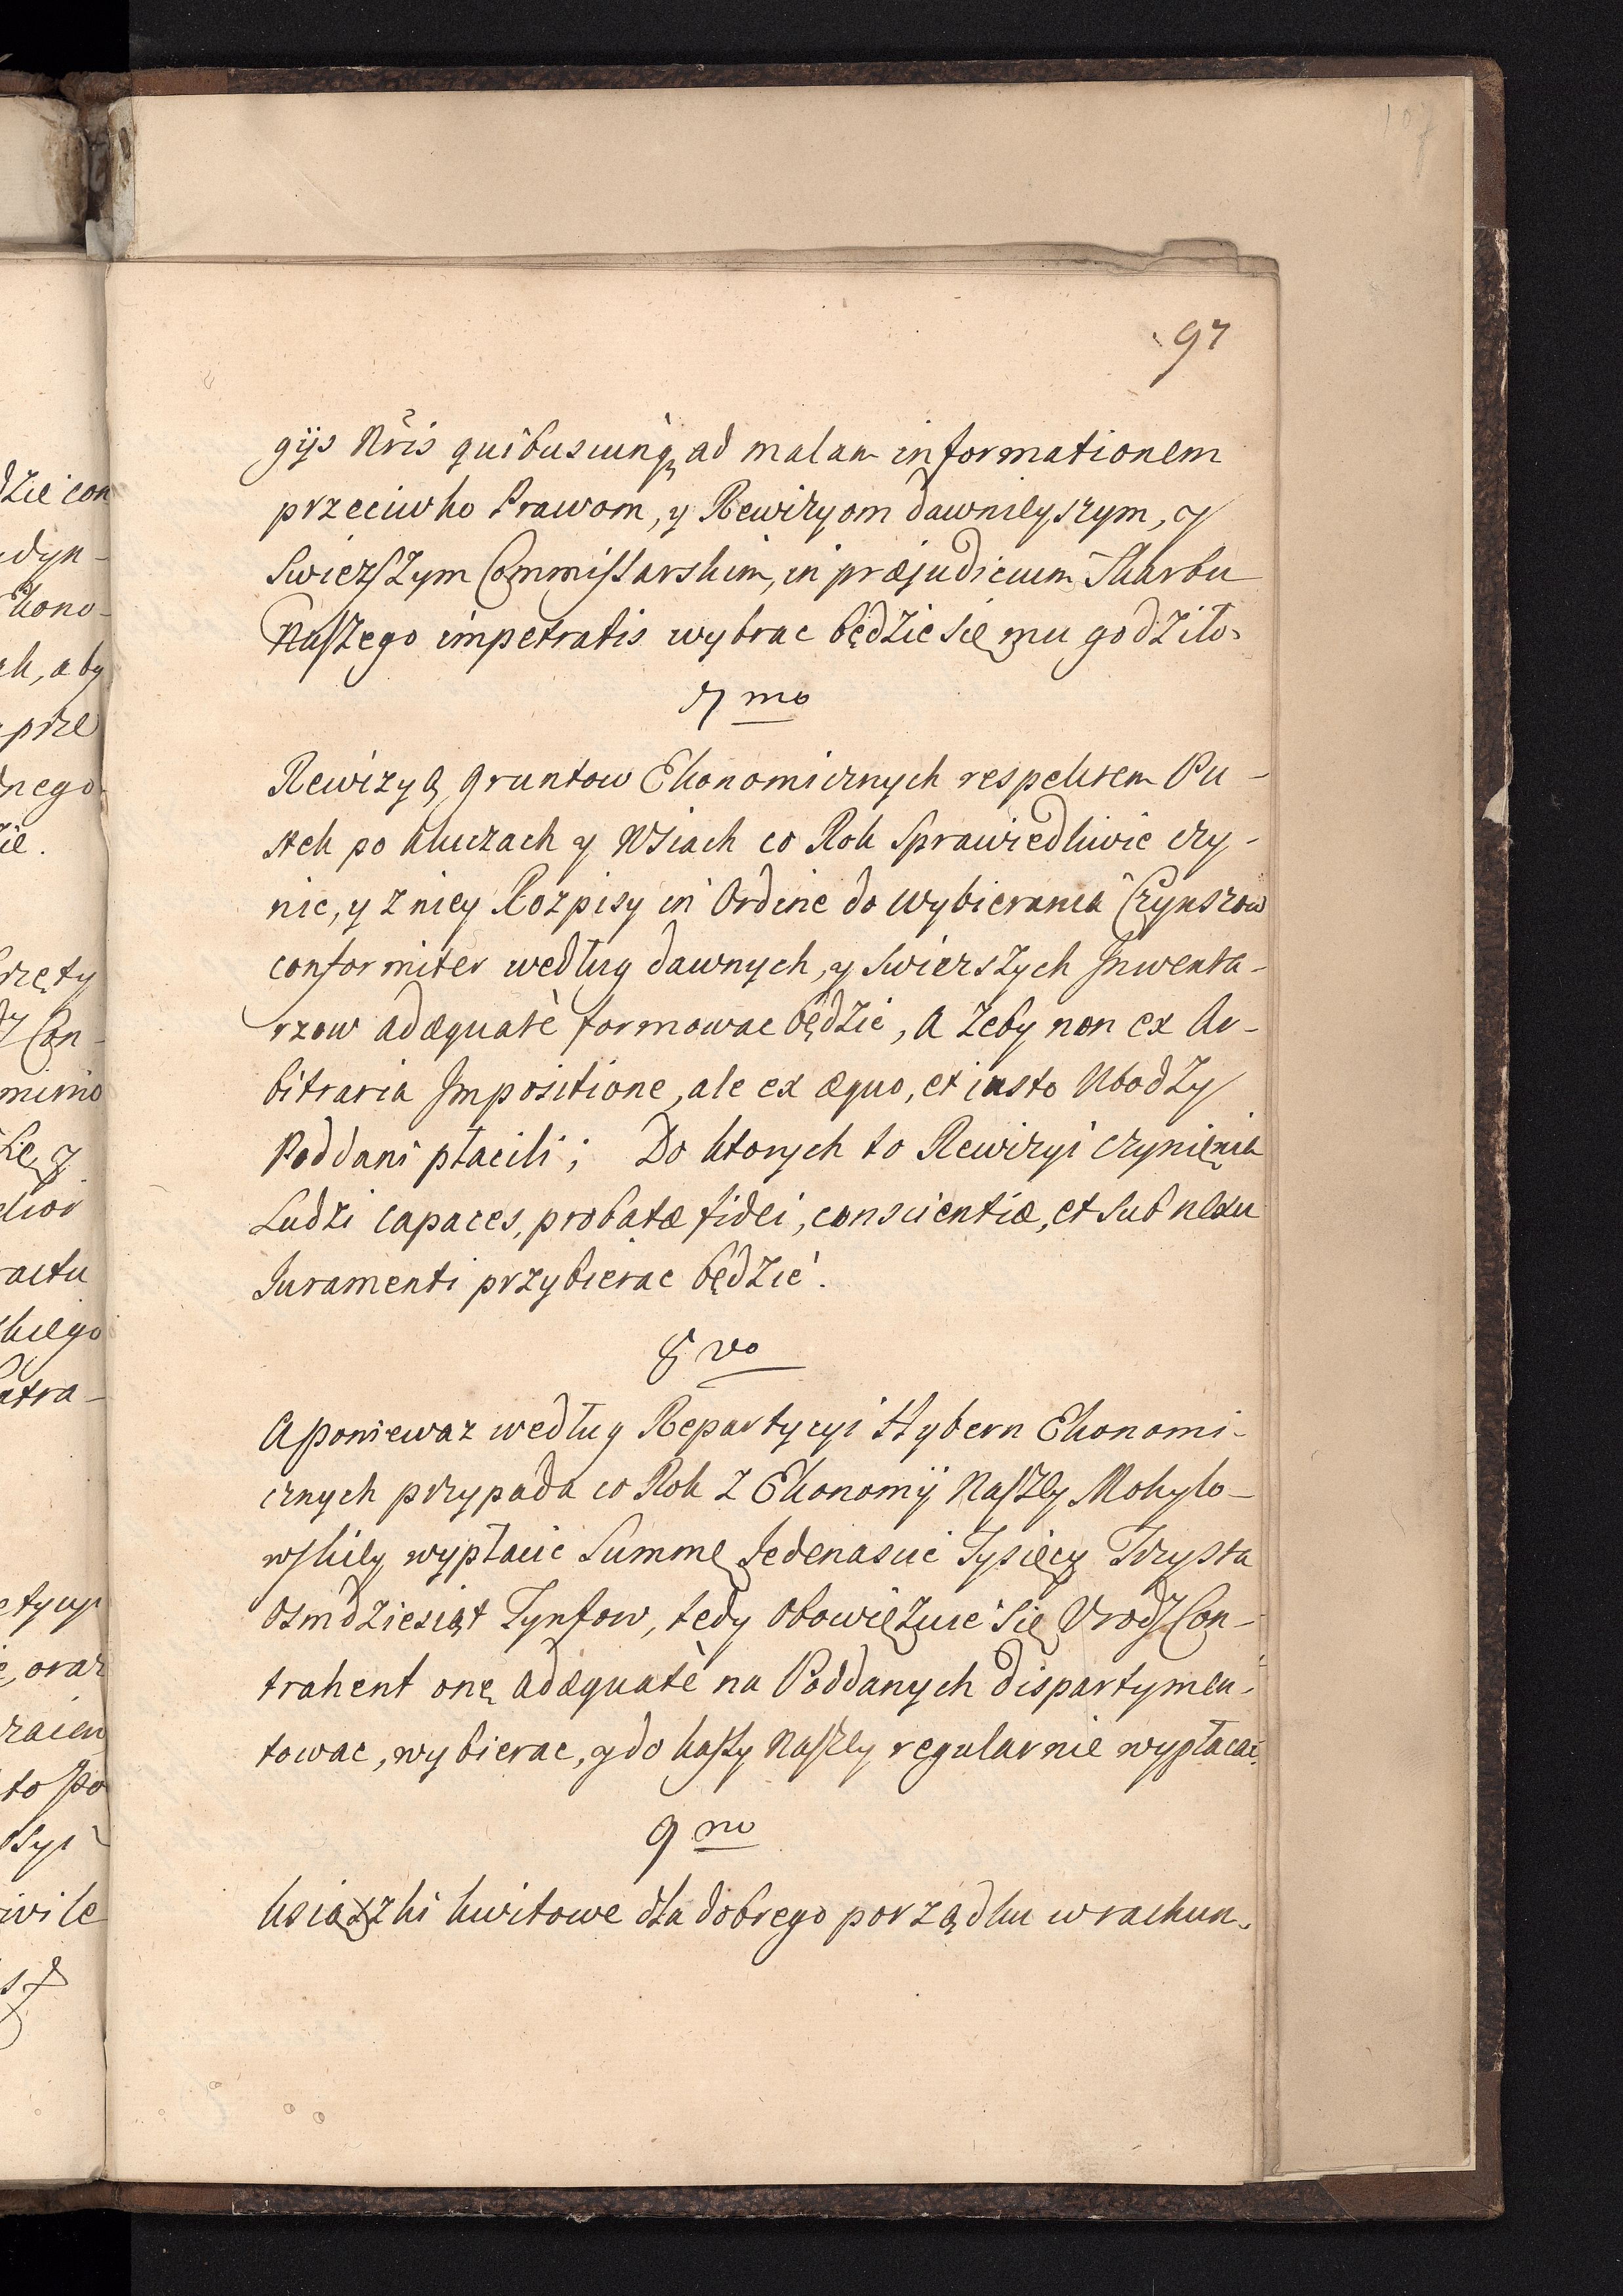 107
97
gijs Nris quibuscunq, ad malam informationem
przeciwko Prawom, y Rewizyom dawnieyszym, y
Swiezszym Commissarskim, in præjudicium Skarbu
Naszego impetratis wybrac będzie się mu godziło.
7 mo
Rewizyą gruntow Ekonomicznych respektem Pu-
stek po kluczach y Wsiach co Rok Sprawiedliwie czy-
nic, y z niey Rozpisy in Ordine do wybierania Czynszow
conformiter według dawnych, y swierszych Inwenta-
rzow adæquatè formowac będzie, a żeby non ex Ar-
bitraria Impositione, ale ex æquo, et iusto Ubodzy
Poddani płacili; Do ktorych to Rewizyi czynienia
Ludzi capaces, probatæ fidei, conscientiæ, et sub nexu
Juramenti przybierac będzie.
8 vo
A poniewaz według Repartycyi Hybern Ekonomi-
cznych przypada co Rok z Ekonomij Naszey Mohylo-
wskiey wypłacic Summę Jedenascie Tysięcy Trzysta
Osmdziesiąt Tynfow, tedy Obowięzuie się Urodz Con-
trahent onę adæquatè na Poddanych dispartymen-
towac, wybierac, y do kassy Naszey regularnie wypłacac.
9 no
Ksiązki kwitowe dla dobrego porządku w rachun-
dzie con
ekono-
ak, aby
prze
dnego
zie.
rzęty
dz Con-
mimo
się y
ractu
skiego
atra-
etycyi
e, oraz
to Po